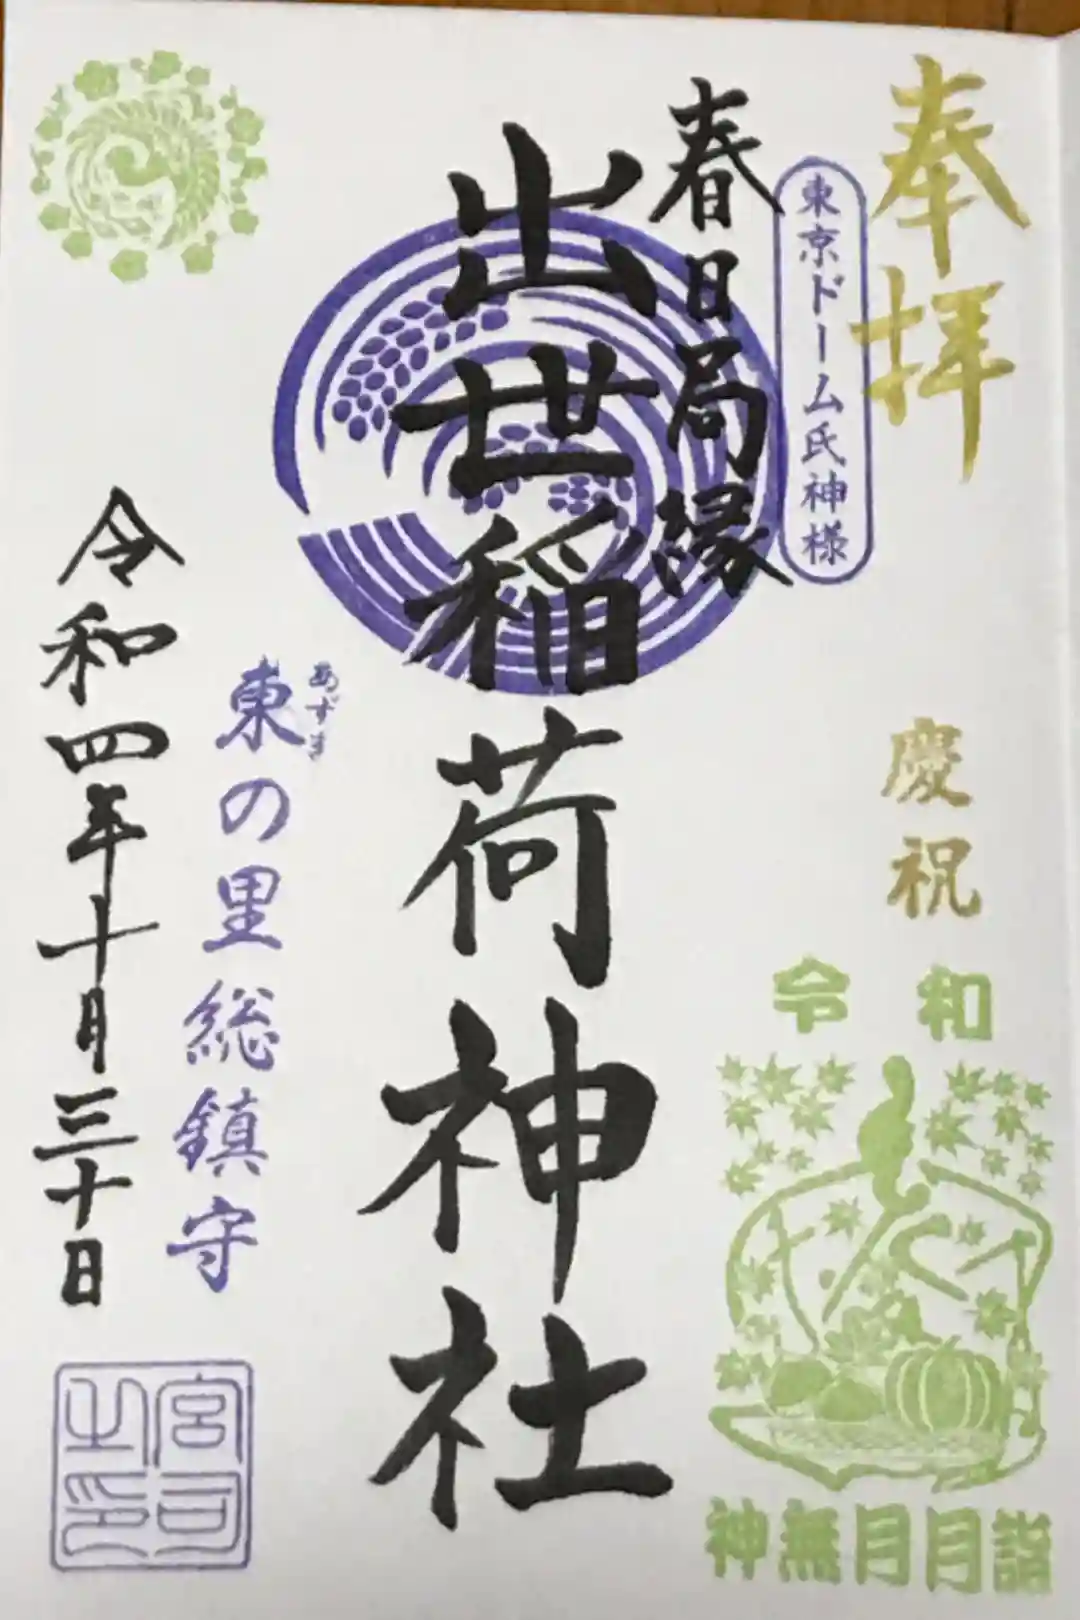 奉拝
東京ドーム氏神様
春日局縁
出世稲荷神社
慶祝
令和
神無月月詣
あずま
東の里総鎮守
令和四年十月三十日
宮司之印